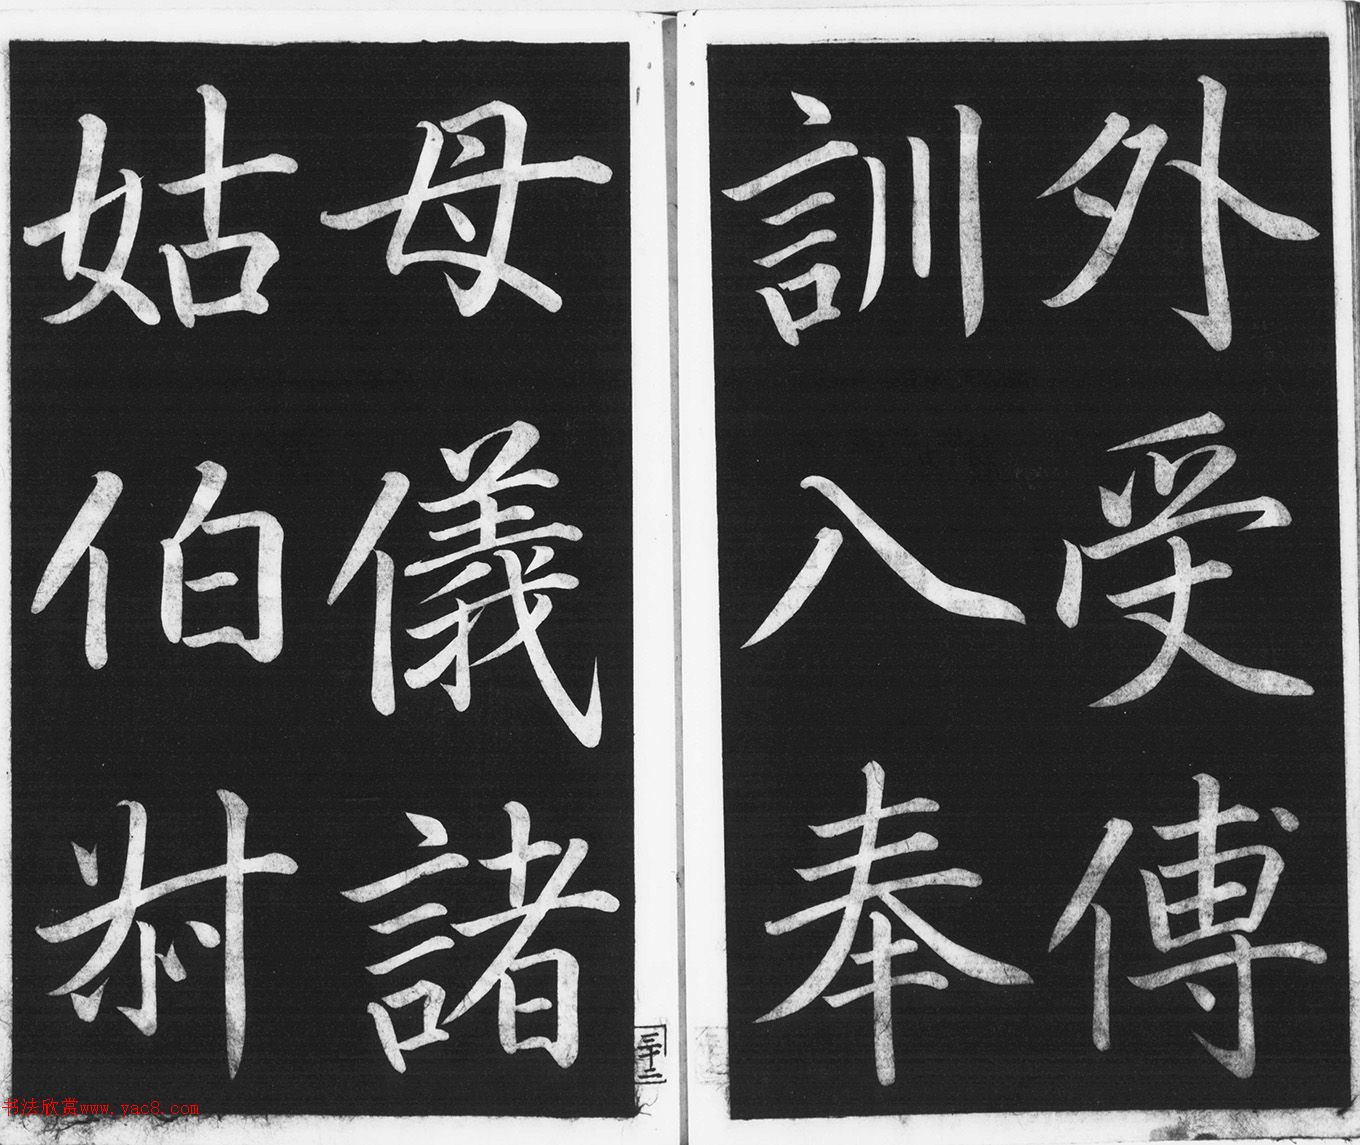 外受傅
訓入奉
母儀諸
姑伯叔
三十二
书法欣赏www.yac8.com